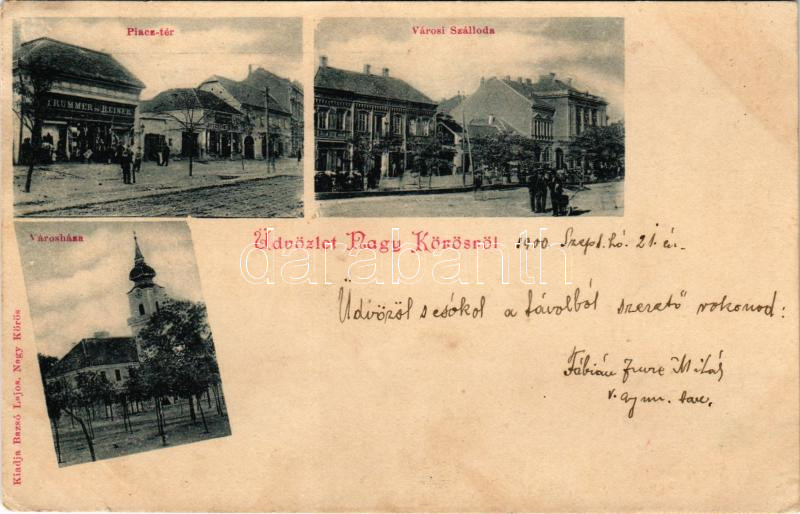 Piacz-tér
Városi Szálloda
TRUMMER és REINER
Városháza
Üdvözlet Nagy Körösről
1900. Szept. hó. 21.-én.
darabanth
Üdvözöl s csókol a távolból szerető rokonod:
Fábián Imre Mihály
v. gymn. tan.
Kiadja Bazsó Lajos, Nagy Körös